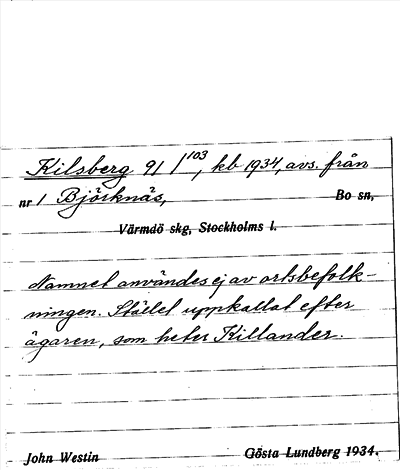 Kilsberg 91/103, kb 1934, avs. från
nr 1 Björknäs, Bo sn,
Värmdö skg, Stockholms l.
Namnet användes ej av ortsbefolk-
ningen. Stället uppkallat efter
ägaren, som heter Killander.
John Westin Gösta Lundberg 1934.